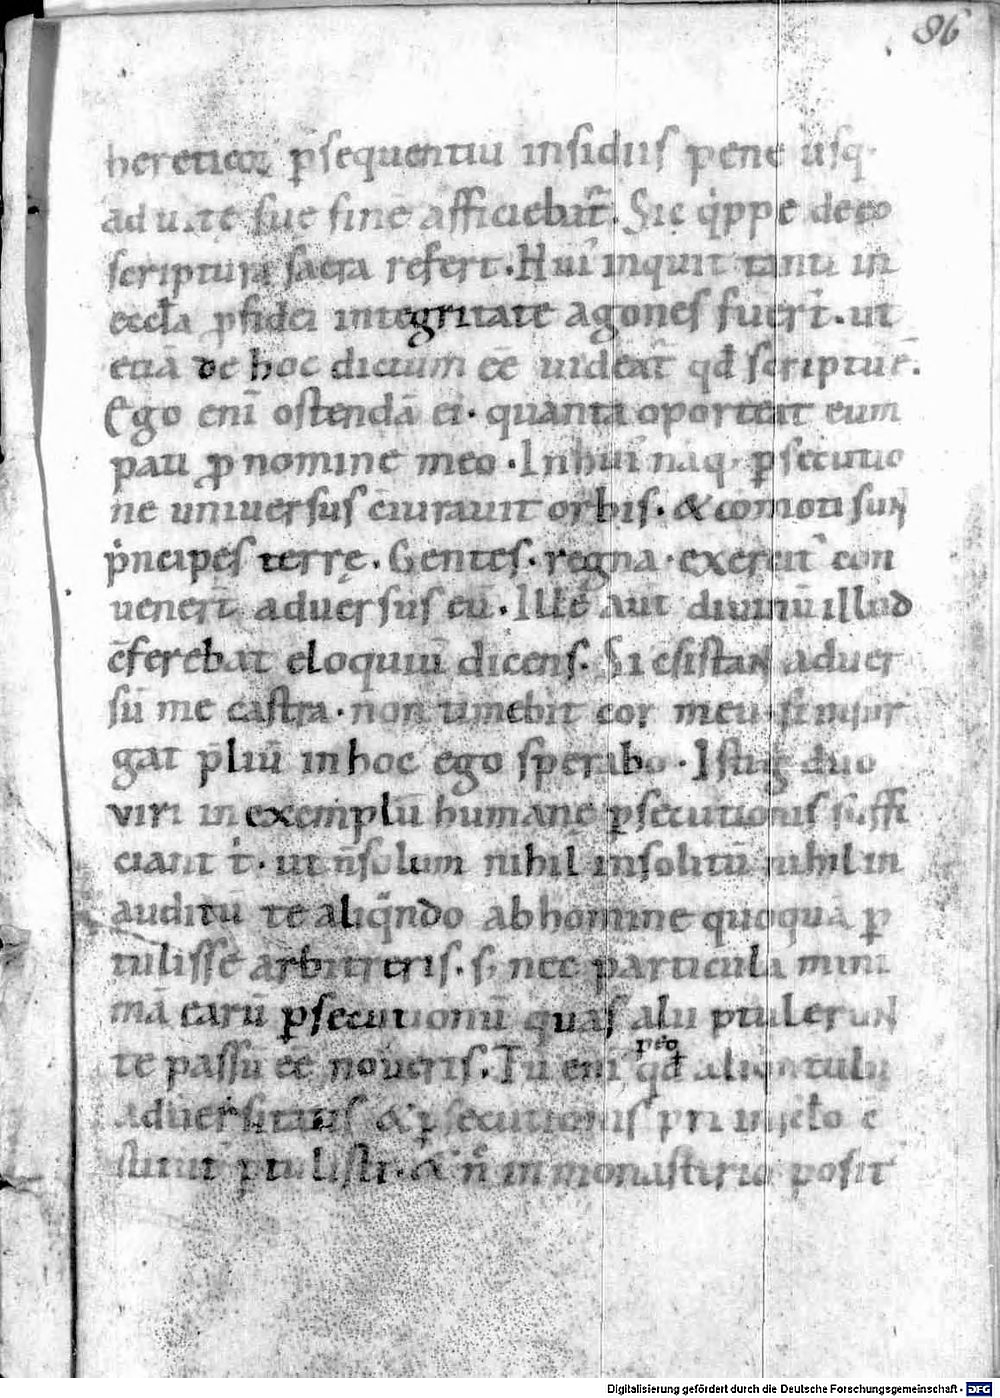 86
hereticoꝝ p̄sequentiū insidiis pene usq·
ad uitę suę finē afficiebat̄. Sic q̇ppe de eo
scriptura sacra refert. Hui᾿ inquit tanti in
eccl̄a ꝓ fidei integritate agones fuer̄t. ut
etiā de hoc dictum eē uideat̄ qđ scriptū ē.
Ego eni᷎ ostendā ei. quanta oporteat eum
pati ꝓ nomine meo. In hui᾿ naq, p̄secutio
ne uniuersus c̄iurauit orbis. & cōmoti sunt
p̓ncipes terrę. Gentes. regna. exercit᾿ con
uenert̄ aduersus eū. Ille aut̄ diuinū illud
c̄ferebat eloquiū dicens. Si c̄sistant aduer
sū me castra. non timebit cor meū. si insur
gat p̄liū in hoc ego sperabo. Isti g᾿ duo
viri in exemplū humanę p̄secutionis suffi
ciant t᷎. ut n̄ solum nihil insolitū nihil in
auditū te aliqn̄do ab homine quoquā ꝑ
tulisse arbitreris. s; nec particulā mini
mā earū p̄secutionū quas alii ptulerunt
te passū eē noueris. Tu eni᷎ qđ
aduersitatis & ꝑsecutionis
ptulisti. & n̄ in monastirio posit᾿
Digitalisierung gefördert durch die Deutsche Forschungsgemeinschaft - DFG